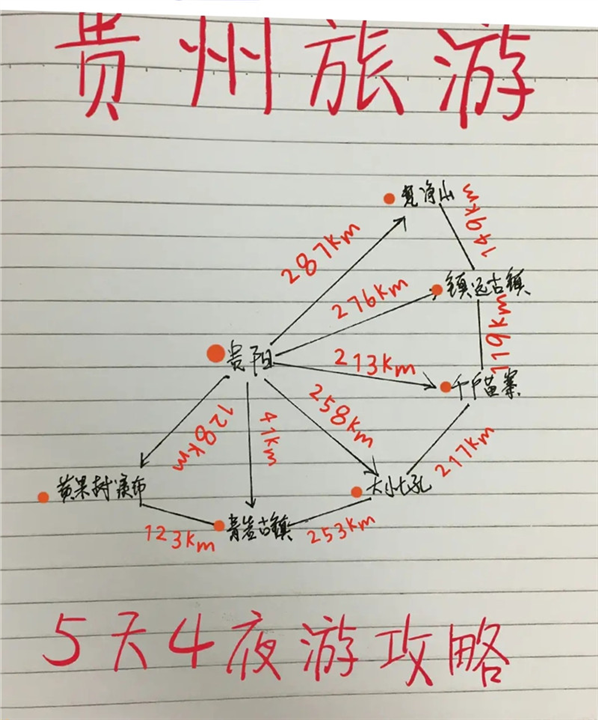 贵州旅游
梵净山
149km
287km
镇远古镇
276km
119km
贵阳
213km
千户苗寨
128km
41km
258km
217km
黄果树瀑布
大小七孔
青岩古镇
123km
253km
5天4夜游攻略